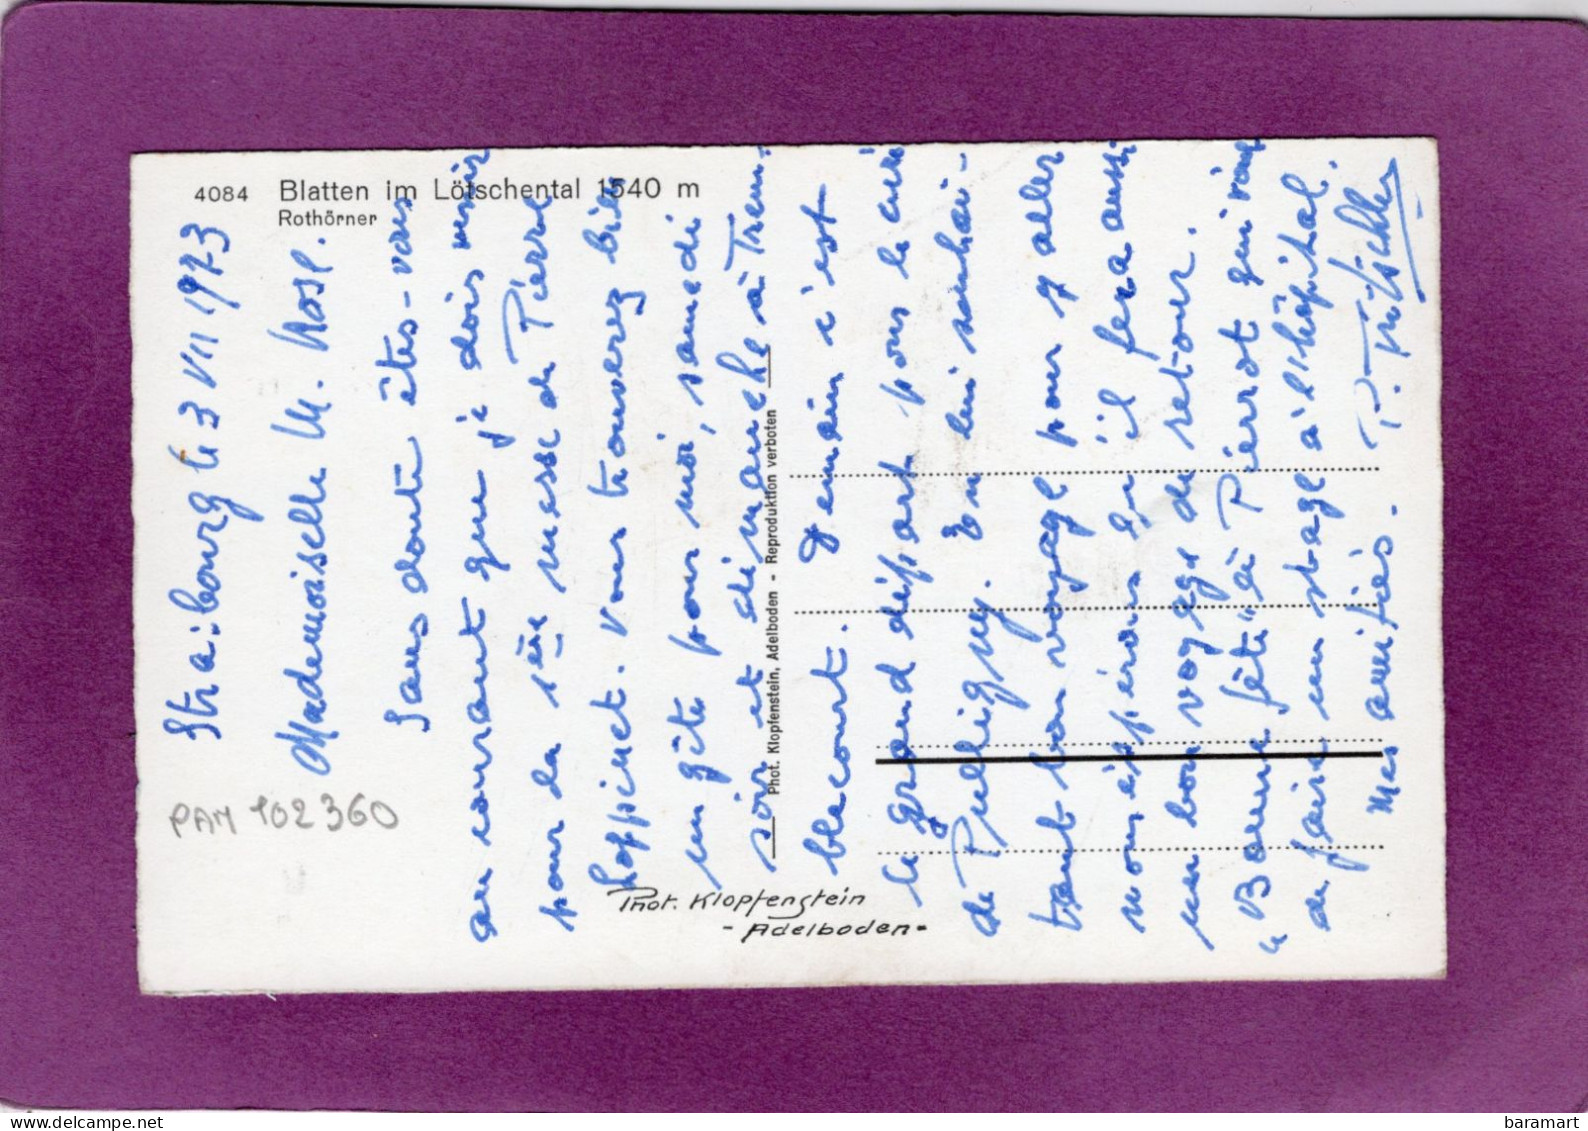 4084 Blatten im Lötschental 1540 m
Rothörner
Strasbourg le 3 VII 1973
Mademoiselle M. Rose.
Sans doute êtes-vous
au courant que je dois venir
pour la 1ère messe de Pierrot
Hoffinet. Vous trouverez bien
un gîte pour moi, samedi
soir et dimanche à Trem-
blecourt. Demain c'est
le grand départ pour le curé
de Pulligny. En lui souhai-
tant bon voyage pour y aller
nous espérons qu'il fera aussi
un bon voyage de retour.
"Bonne fête" à Pierrot qui vient
de faire un stage à l'hôpital.
Mes amitiés.
Phot. Klopfenstein, Adelboden - Reproduktion verboten
Phot. Klopfenstein
- Adelboden -
PAM 102360
delcampe.net
baramart